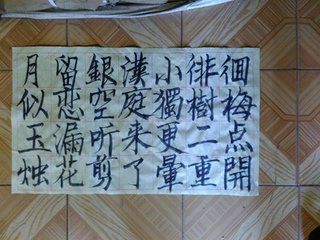 月留銀漢小徘徊
似恋空庭獨樹梅
玉漏听来更二点
烛花剪了暈重開